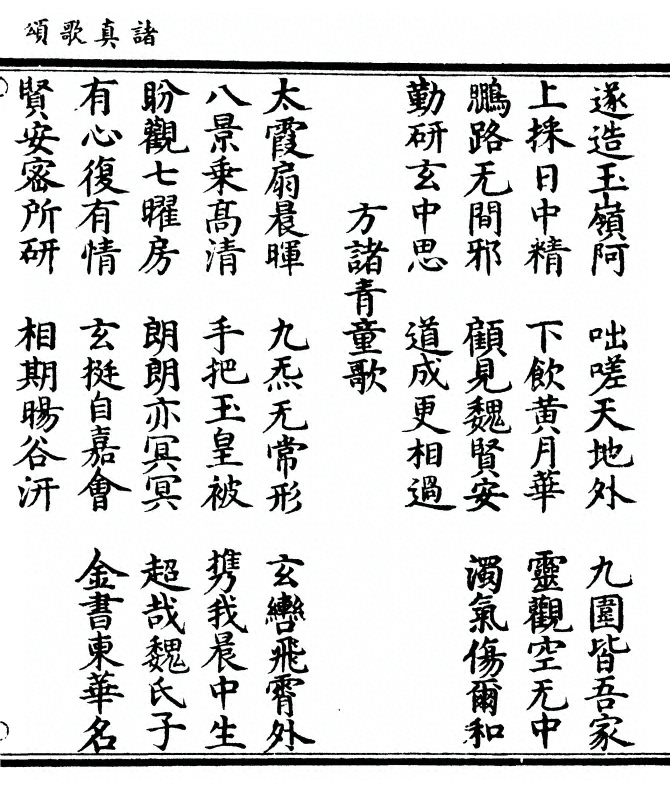 諸真歌頌
遂造玉嶺阿　咄嗟天地外　九圍皆吾家
上採日中精　下飲黃月華　靈觀空无中
鵬路无間邪　顧見魏賢安　濁氣傷爾和
勤研玄中思　道成更相過
方諸青童歌
太霞扇晨暉　九炁无常形　玄轡飛霄外
八景乗髙清　手把玉皇被　携我晨中生
盼觀七曜房　朗朗亦冥冥　超哉魏氏子
有心復有情　玄挺自嘉會　金書東華名
賢安密所研　相期暘谷汧